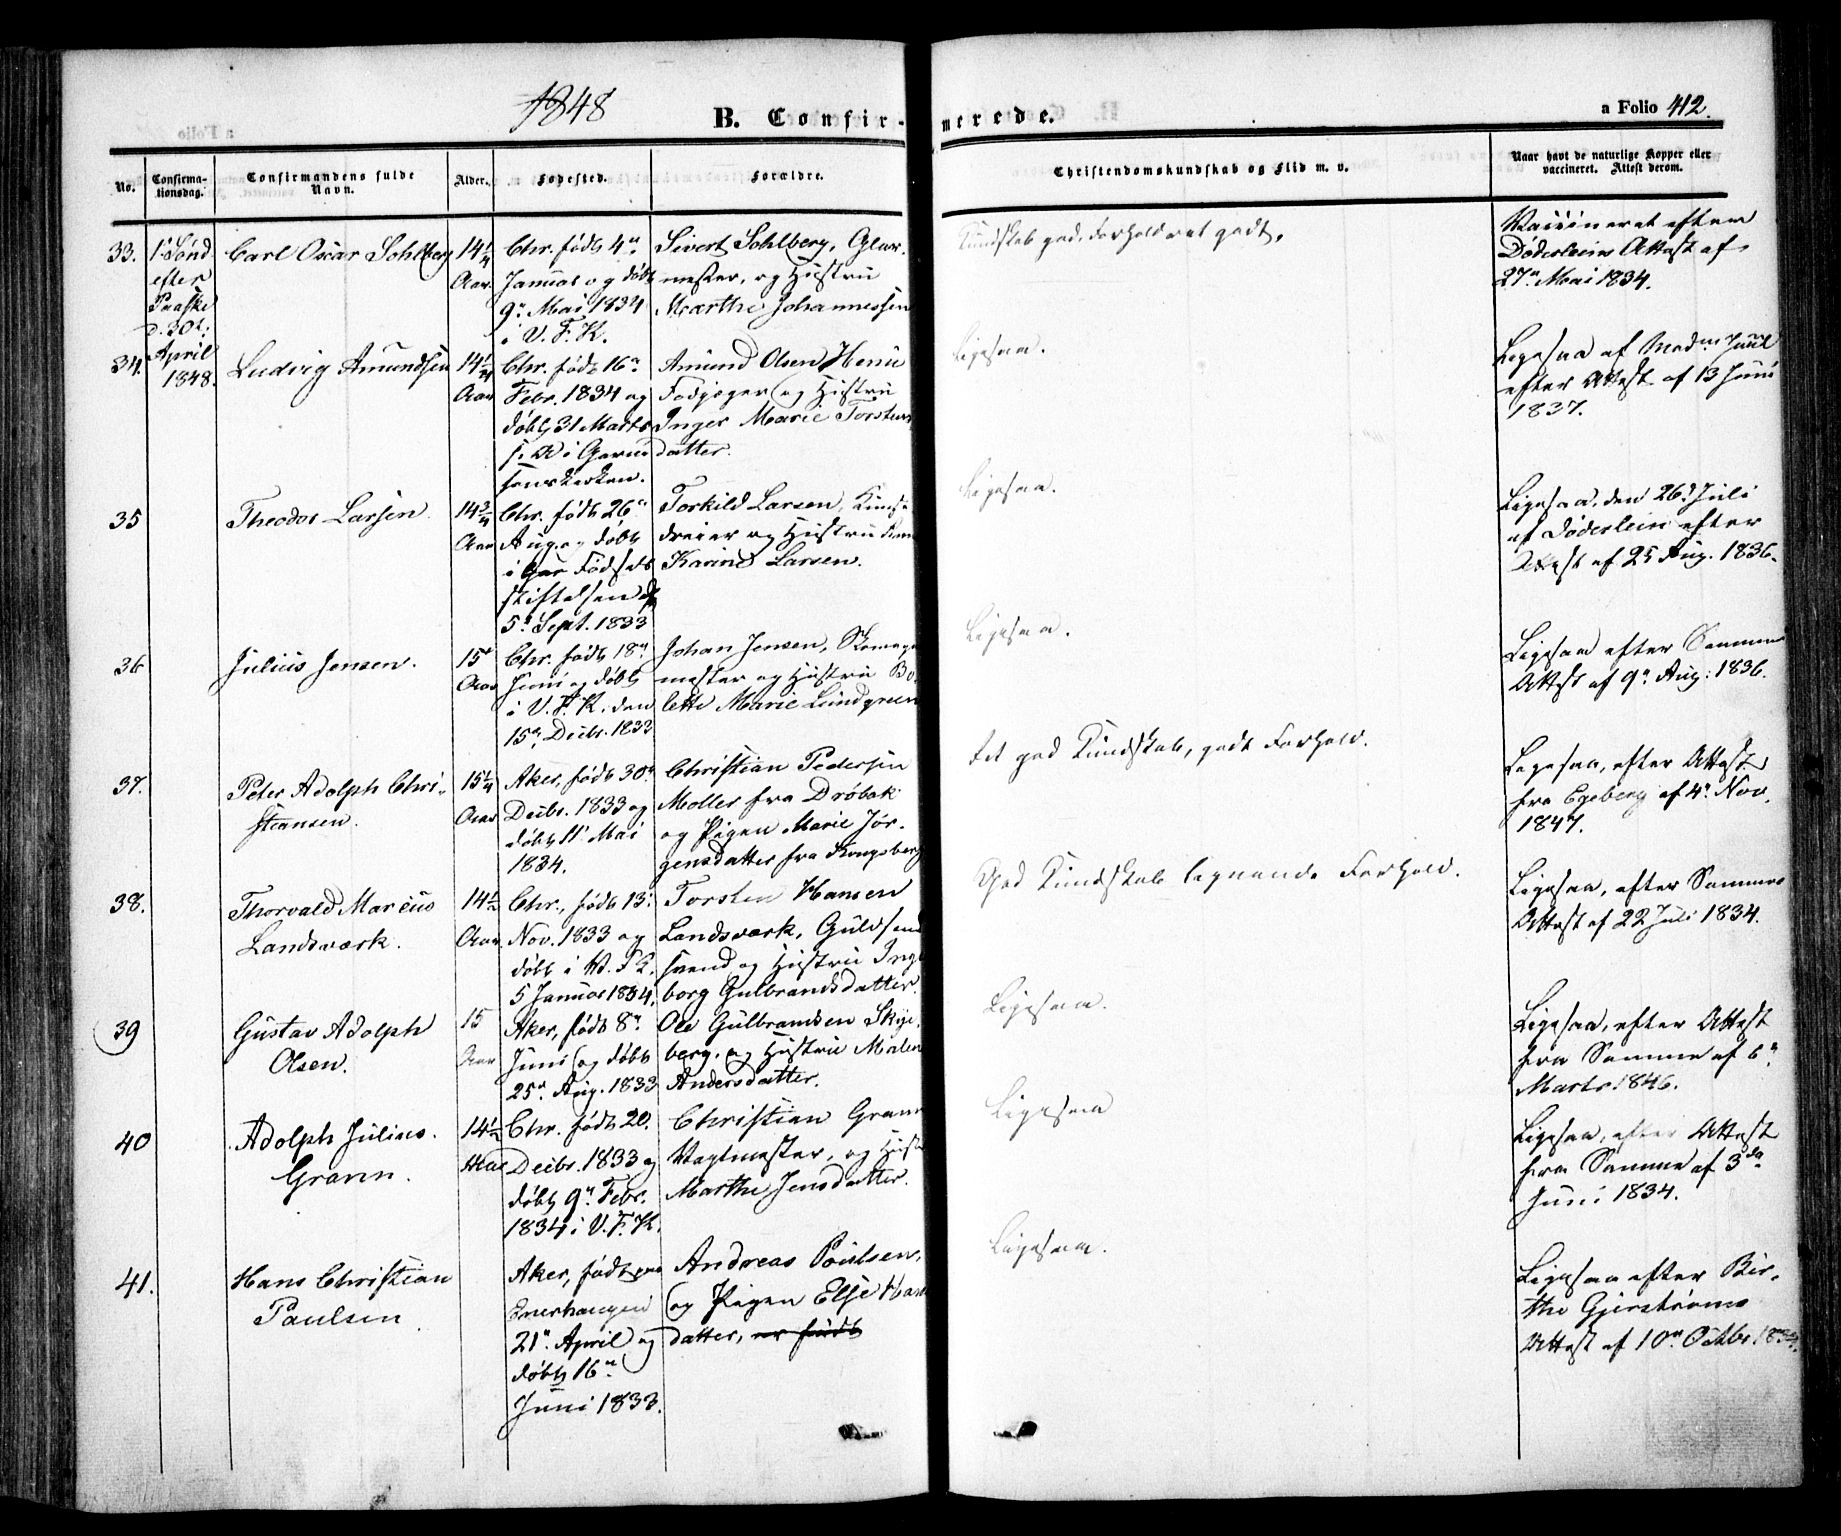 1848
B. Confir-
merede.
a Folio 412.
No.
Confirma-
tionsdag.
Confirmandens fulde
Navn.
Alder.
Fødested.
Forældre.
Christendomskundskab og Flid m. v.
Naar havt de naturlige Kopper eller
vaccineret. Attest derom.
33.
1' Sønd
efter
Paaske
d. 30t
April
1848.
Carl Oscar Sohlberg
14 1/4
Aar.
Chr. født 4de
Januar og døbt
9de Mai 1834
i V. F. K.
Sivert Sohlberg, Glar-
mester, og Hustru
Marthe Johannessen
Kundskab god, Forhold ret godt.
Vaccineret efter
Døderleins Attest af
27de Mai 1834.
34.
Ludvig Amundsen
14 1/4
Aar
Chr. født 16de
Febr. 1834 og
døbt 31 Marts
s. A. i Garni
sonskirken.
Amund Olsen
Fodjæger og Hustru
Inger Marie Torstens
datter.
Ligesaa.
Ligesaa af Madm Juul
efter Attest af 13 Juni
1837.
35
Theodor Larsen
14 3/4
Aar
Chr. født 26de
Aug. og døbt
i Fødsels
stiftelsen
5de Sept. 1833
Torkild Larsen, Kunst
dreier og Hustru
Karine Larsen.
Ligesaa.
Ligesaa, den 26. Juli
af Døderlein efter
Attest af 25 Aug. 1836.
36
Julius Jensen.
15
Aar
Chr. født 18de
Juni og døbt
i V. F. K. den
15de Decbr. 1833
Johan Jensen, Skomager
mester og Hustru Bo-
lette Marie Lundgreen
Ligesaa.
Ligesaa efter Samme
Attest af 9de Aug: 1836.
37.
Peter Adolph Chri-
stiansen.
15 1/4
Aar
Aker, født 30de
Decbr. 1833 og
døbt 11' Mai
1834.
Christian Pedersen
Moller fra Drøbak
og Pigen Marie Jør-
gensdatter fra Kongsberg
Ret god Kundskab, godt Forhold.
Ligesaa, efter Attest
fra Egeberg af 4de Nov.
1847.
38.
Thorvald Marcus
Landsværk.
14 1/2
Aar
Chr., født 13.
Nov. 1833 og
døbt i V. F. K.
5 Januar 1834.
Torsten Hansen
Landsværk, Guldsmed
svend og Hustru Inge
borg Gulbrandsdatter.
God Kundskab lignende Forhold.
Ligesaa, efter Sammes
Attest af 22 Juli 1834.
39
Gustav Adolph
Olsen.
15
Aar
Aker, født 8de
Juni og døbt
25de Aug. 1833
Ole Gulbrandsen Skije-
berg, og Hustru Malen
Andersdatter.
Ligesaa.
Ligesaa, efter Attest
fra Samme af 6de
Marts 1846.
40
Adolph Julius.
Grann.
14 1/2
Aar
Chr. født 20.
Decbr. 1833 og
døbt 9de Febr.
1834 i V. F. K.
Christian Grann
Vagtmester, og Hust
Marthe Jensdatter.
Ligesaa
Ligesaa, efter Attest
fra Samme af 3die
Juni 1834.
41.
Hans Christian
Paulsen
Aker, født paa
Enerhaugen
21de April og
døbt 16de
Juni 1833.
Andreas Poulsen,
og Pigen Else Hans
datter, er født
Ligesaa.
Ligesaa efter Bir-
the Gjerstrøms
Attest af 10de Octbr.